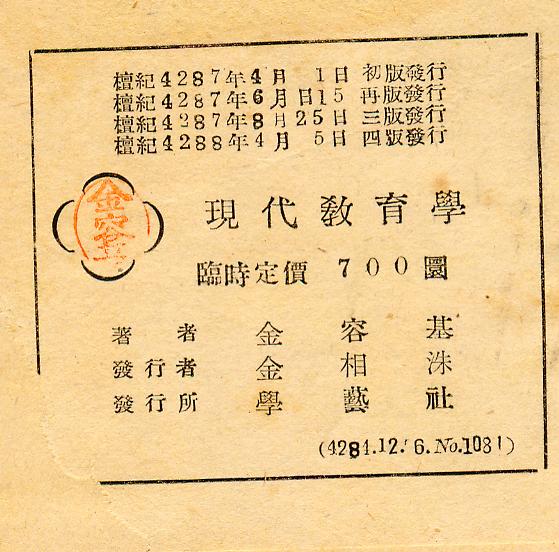 檀紀4287年4月 1日 初版發行
檀紀4287年6月日15 再版發行
檀紀4287年8月25日 三版發行
檀紀4288年4月 5日 四版發行
現代敎育學
臨時定價 700圜
著者 金容基
發行者 金相洙
發行所 學藝社
(4284.12.16.No.1081)